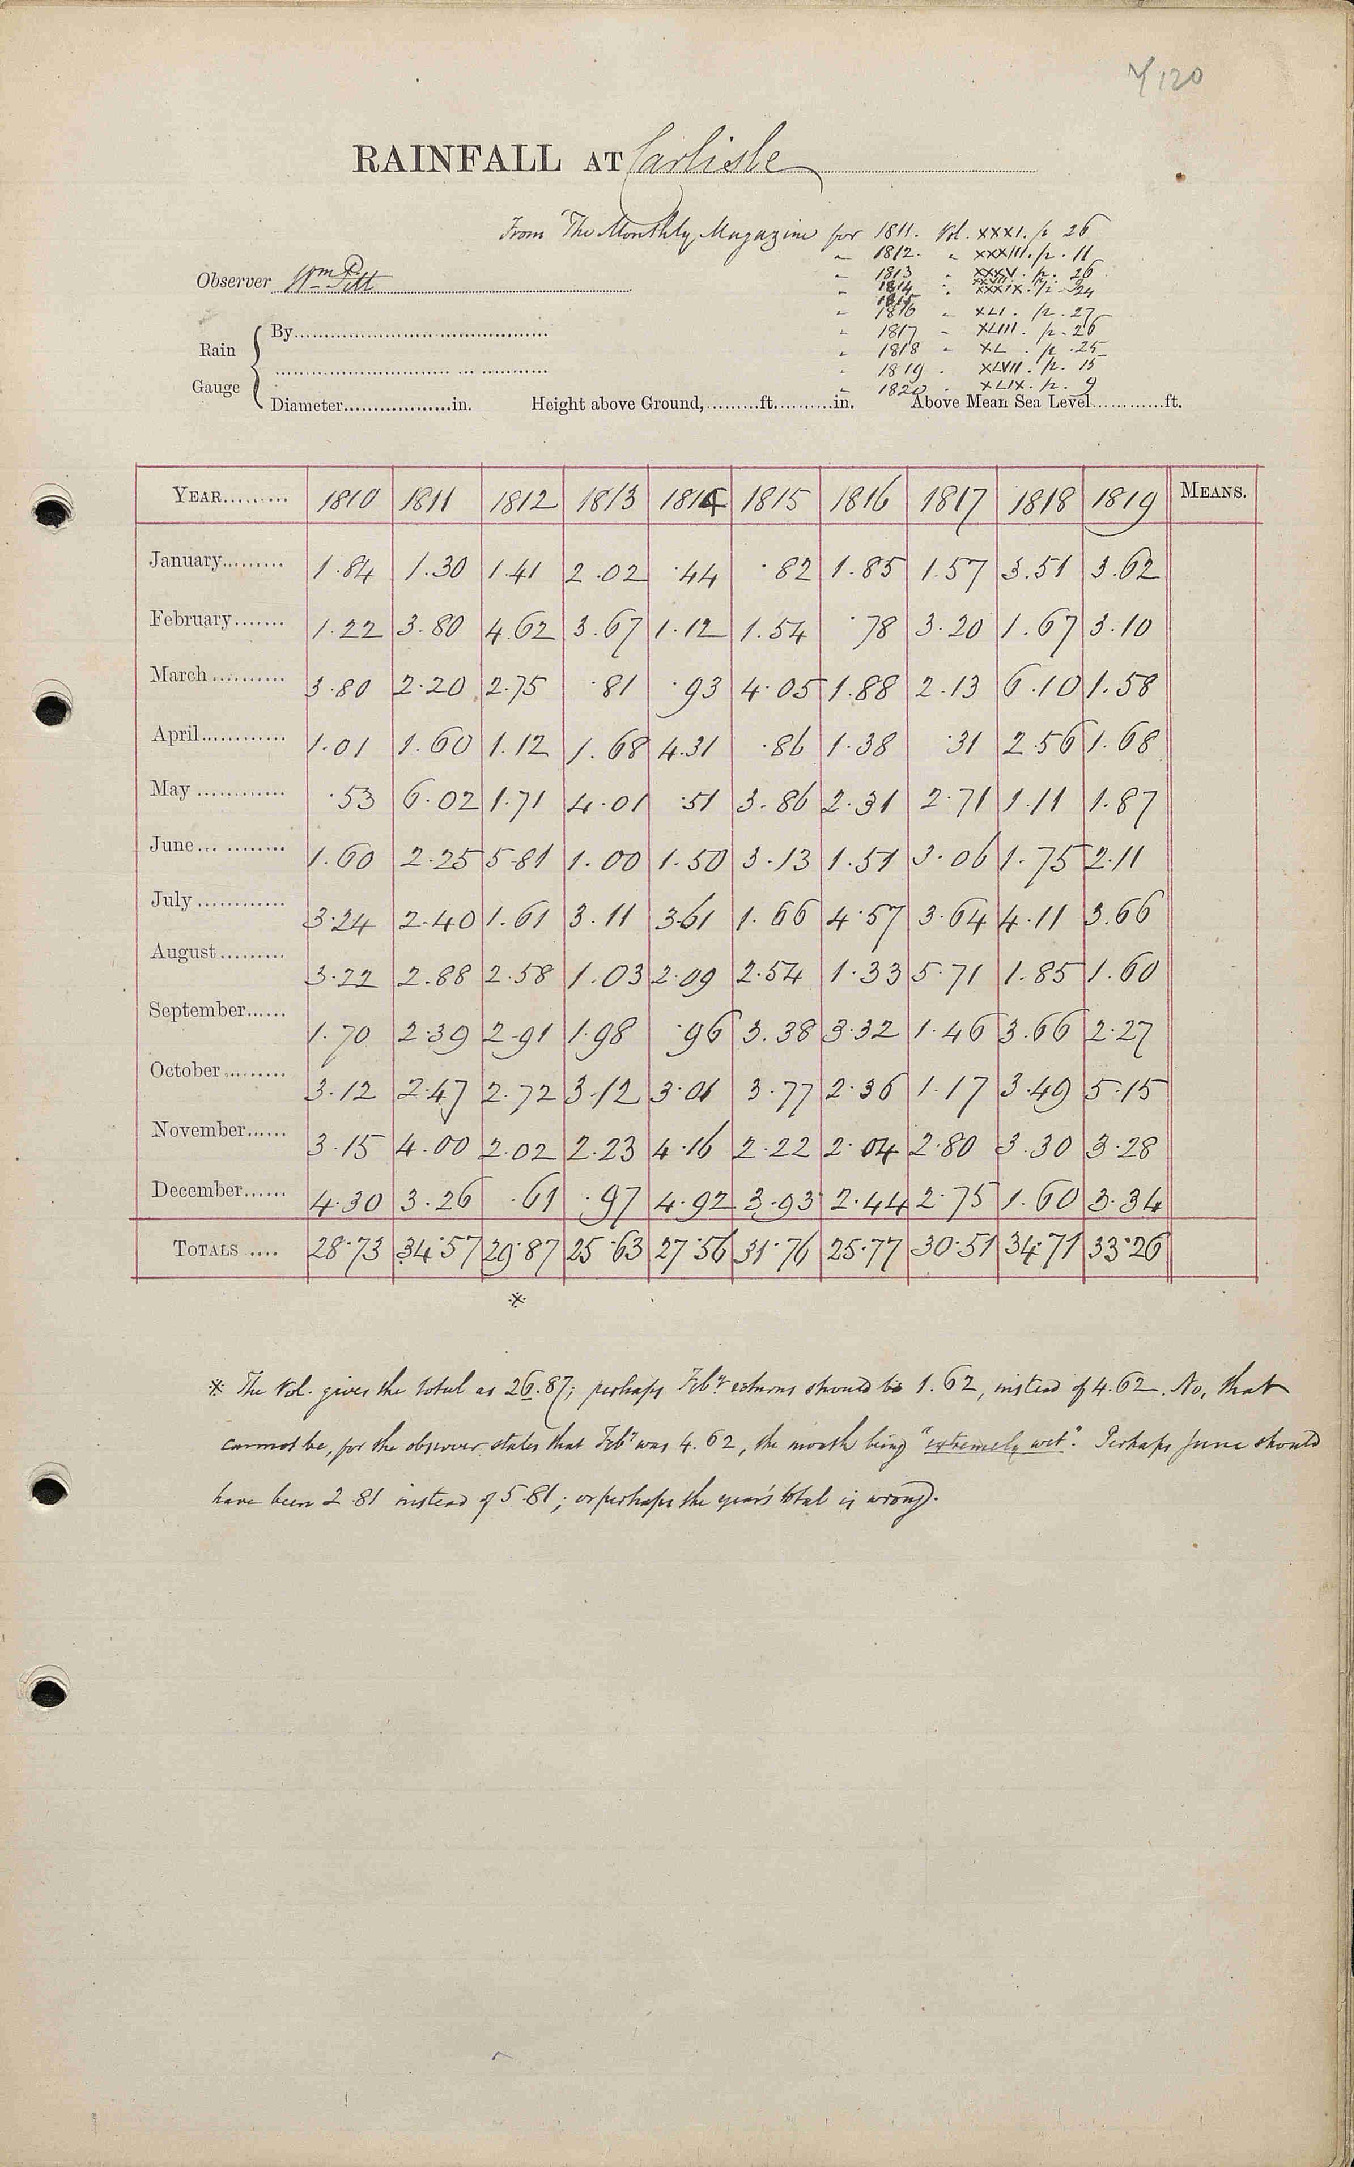 7/120
RAINFALL AT Carlisle
From The Monthly Magazine for 1811. Vol. XXXI. p. 26
" 1812. " XXXIII. p. 11
Observer Wm Pitt
" 1813 " XXXV. p. 26
" 1814 " p.
" 1815 " XXXIX. p. 24
" 1816 " XLI. p. 27
" 1817 " XLIII. p. 26
" 1818 " XL . p. 25
" 1819 " XLVII. p. 15
" 1820 " XLIX. p. 9
Rain Gauge
By
Diameter in. Height above Ground, ft. in. Above Mean Sea Level ft.
YEAR 1810 1811 1812 1813 1814 1815 1816 1817 1818 1819 MEANS.
January 1.84 1.30 1.41 2.02 .44 .82 1.85 1.57 3.51 3.62
February 1.22 3.80 4.62 3.67 1.12 1.54 .78 3.20 1.67 3.10
March 3.80 2.20 2.75 .81 .93 4.05 1.88 2.13 6.10 1.58
April 1.01 1.60 1.12 1.68 4.31 .86 1.38 .31 2.56 1.68
May .53 6.02 1.71 4.01 .51 3.86 2.31 2.71 1.11 1.87
June 1.60 2.25 5.81 1.00 1.50 3.13 1.51 3.06 1.75 2.11
July 3.24 2.40 1.61 3.11 3.61 1.66 4.57 3.64 4.11 3.66
August 3.22 2.88 2.58 1.03 2.09 2.54 1.33 5.71 1.85 1.60
September 1.70 2.39 2.91 1.98 .96 3.38 3.32 1.46 3.66 2.27
October 3.12 2.47 2.72 3.12 3.01 3.77 2.36 1.17 3.49 5.15
November 3.15 4.00 2.02 2.23 4.16 2.22 2.04 2.80 3.30 3.28
December 4.30 3.26 .61 .97 4.92 3.93 2.44 2.75 1.60 3.34
TOTALS 28.73 34.57 29.87 25.63 27.56 31.76 25.77 30.51 34.71 33.26
*
* The Vol. gives the total as 26.87; perhaps Feby returns should be 1.62, instead of 4.62. No, that
cannot be, for the observer states that Feby was 4.62, the month being "extremely wet". Perhaps June should
have been 2.81 instead of 5.81; or perhaps the year's total is wrong.